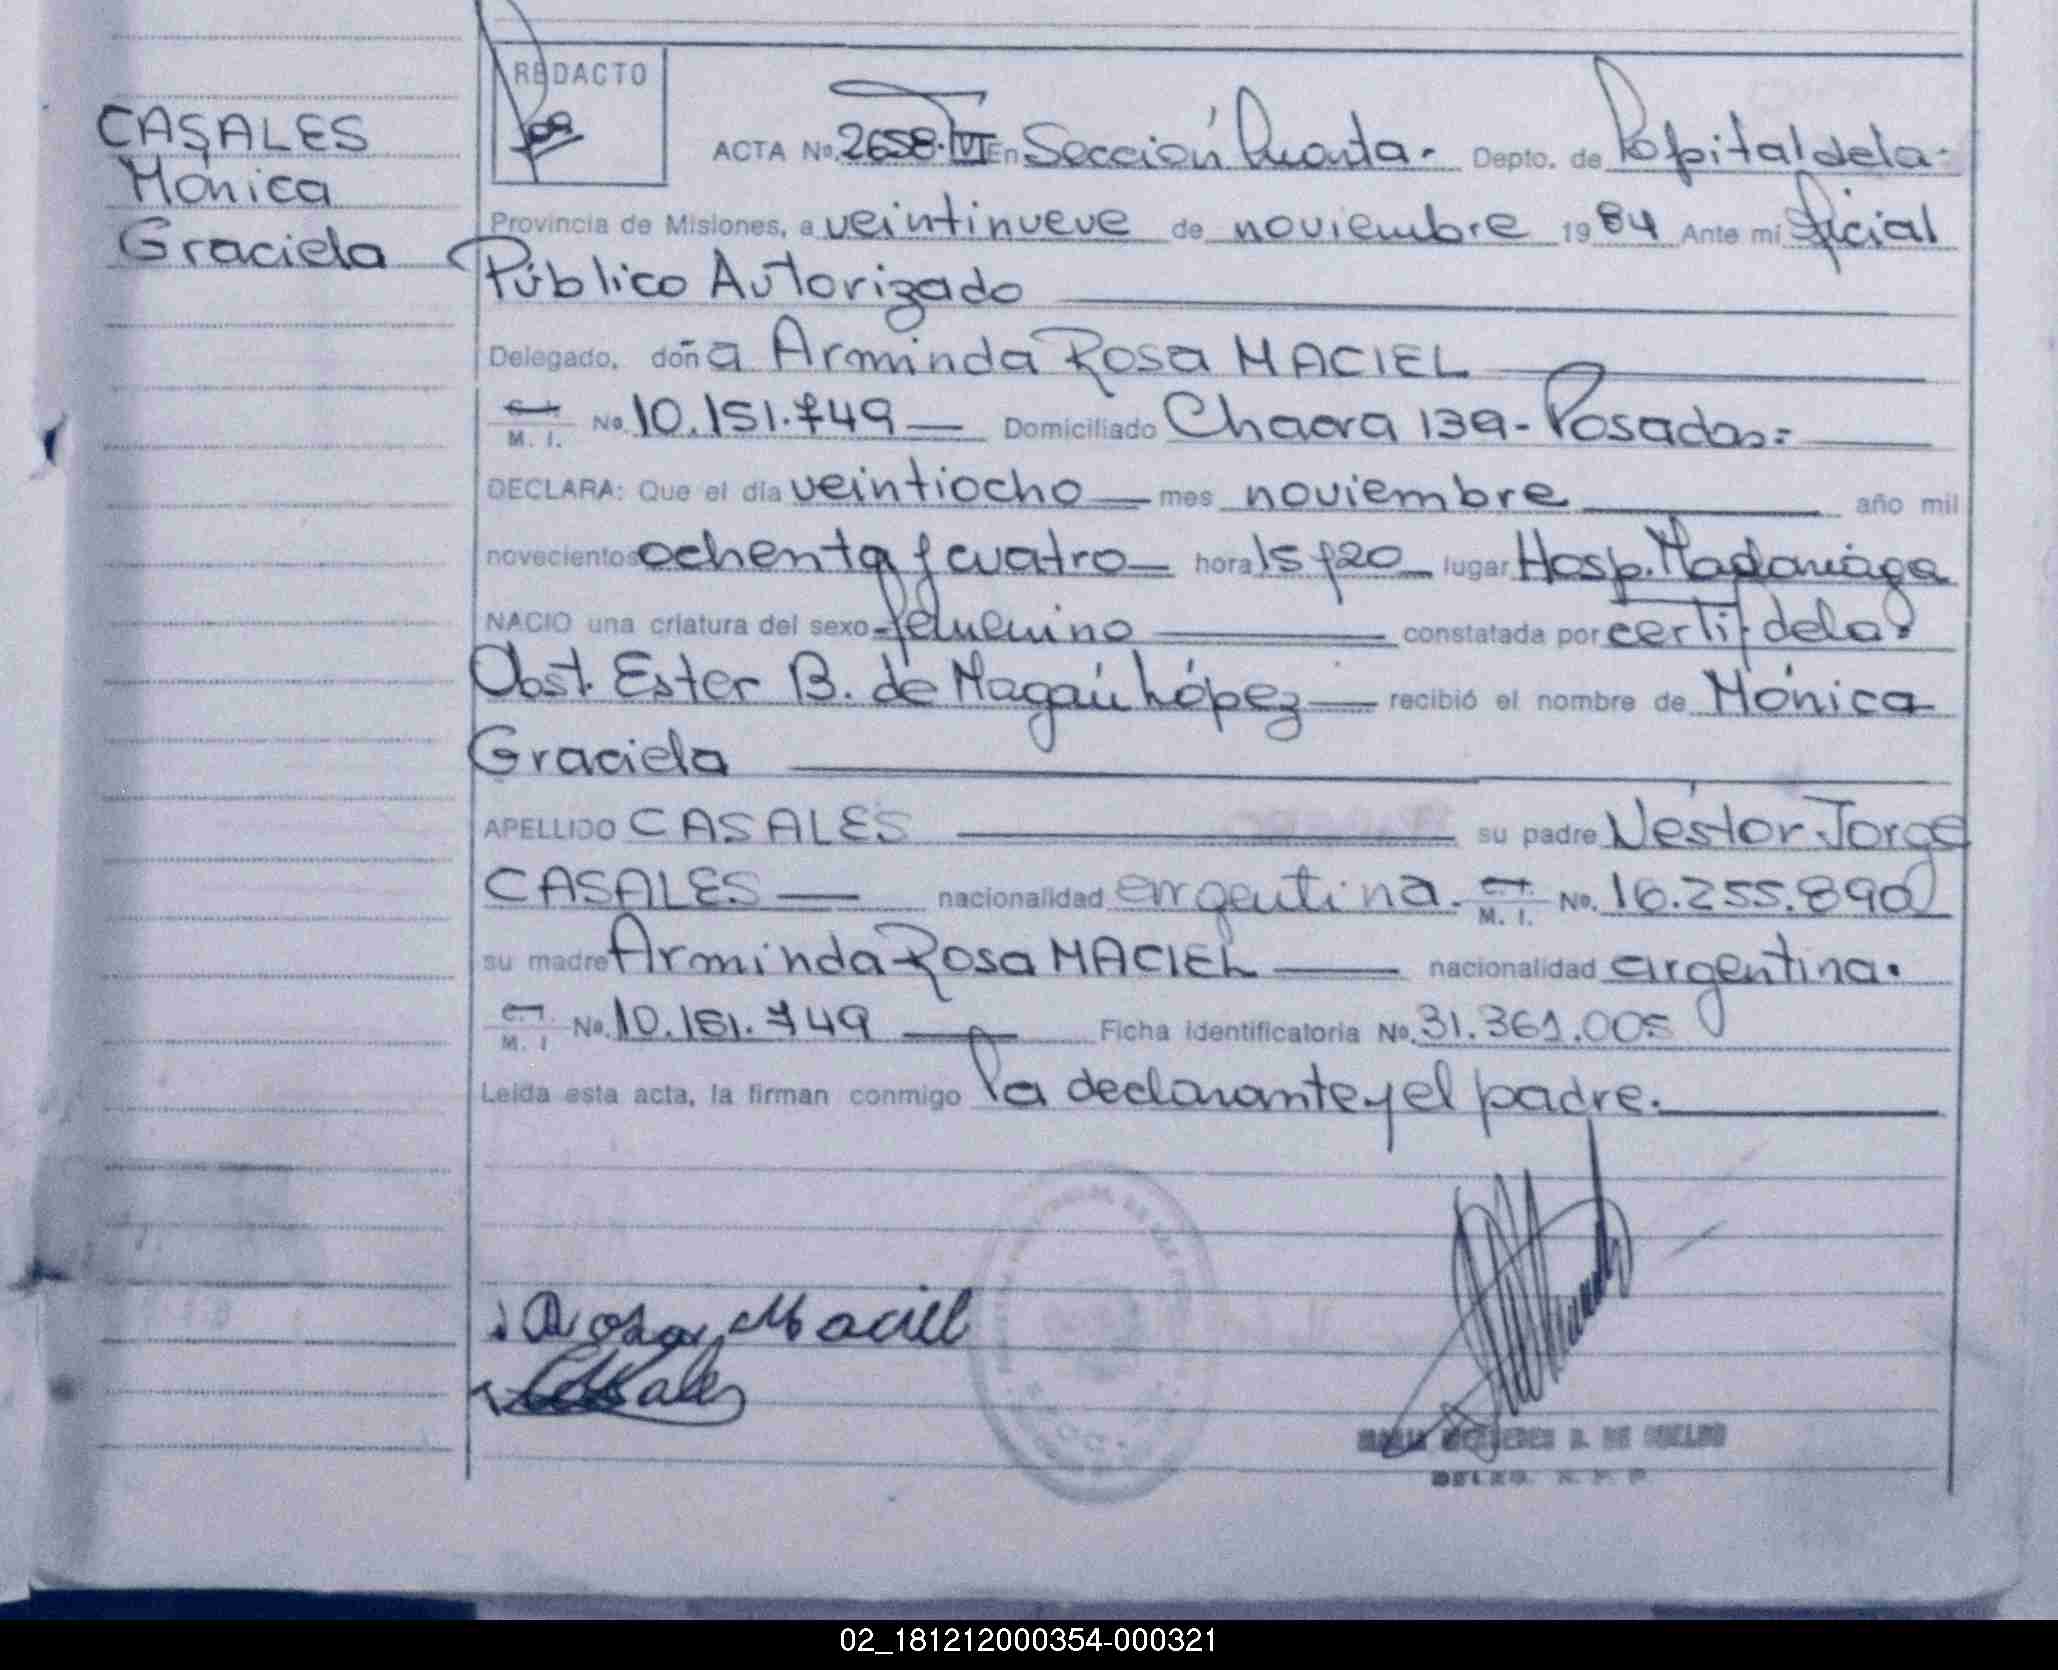 REDACTO
CASALES
Mónica
Graciela
ACTA No. 2658. VI En Sección Cuarta. Depto. de Capital de la
Provincia de Misiones, a veintinueve de noviembre 1984 Ante mí Oficial
Público Autorizado
Delegado, doña Arminda Rosa MACIEL
M. I. No. 10.151.749 Domiciliado Chacra 139 - Posadas.
DECLARA: Que el día veintiocho mes noviembre año mil
novecientos ochenta y cuatro hora 15 y 20 lugar Hosp. Madariaga
NACIO una criatura del sexo femenino constatada por certif. de la
Obst. Ester B. de Magaú López recibió el nombre de Mónica
Graciela
APELLIDO CASALES su padre Néstor Jorge
CASALES nacionalidad argentina. M. I. No. 16.255.890
su madre Arminda Rosa MACIEL nacionalidad argentina.
M. I No. 10.151.749 Ficha identificatoria No. 31.361.005
Leída esta acta, la firman conmigo la declarante y el padre.
Rosa Maciel
Casales
DE
DELEG. R. P. P
02_181212000354-000321